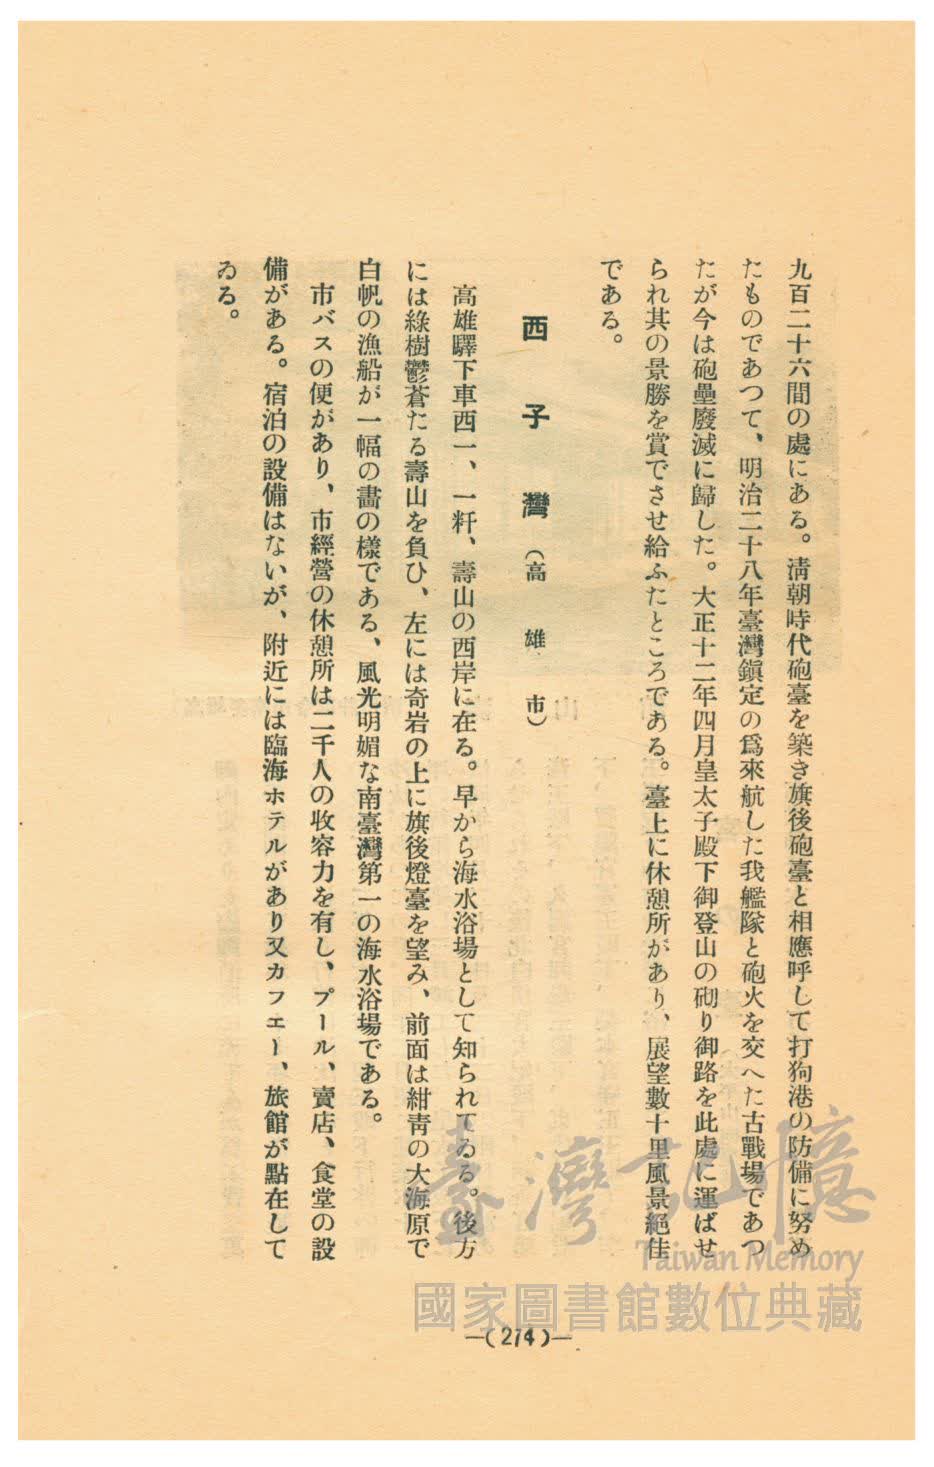 九百二十六間の處にある。淸朝時代砲臺を築き旗後砲臺と相應呼して打狗港の防備に努め
たものであつて、明治二十八年臺灣鎭定の爲來航した我艦隊と砲火を交へた古戰場であつ
たが今は砲壘廢滅に歸した。大正十二年四月皇太子殿下御登山の砌り御路を此處に運ばせ
られ其の景勝を賞でさせ給ふたところである。臺上に休憩所があり、展望數十里風景絕佳
である。
西子灣（高雄市）
高雄驛下車西一、一粁、壽山の西岸に在る。早から海水浴場として知られてゐる。後方
には綠樹鬱蒼たる壽山を負ひ、左には奇岩の上に旗後燈臺を望み、前面は紺靑の大海原で
白帆の漁船が一幅の畫の樣である、風光明媚な南臺灣第一の海水浴場である。
市バスの便があり、市經營の休憩所は二千人の收容力を有し、プール、賣店、食堂の設
備がある。宿泊の設備はないが、附近には臨海ホテルがあり又カフエー、旅館が點在して
ゐる。
臺灣記憶
Taiwan Memory
國家圖書館數位典藏
—(274)—